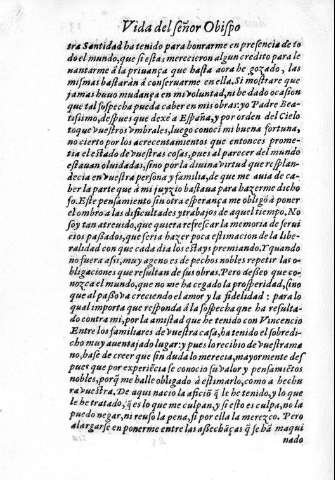 Vida del señor Obispo
tra Santidad ha tenido para honrarme en presencia de to
do el mundo, que si esta; merecieron algun credito para le
uantarme á la priuança que hasta aora he gozado, las
mismas bastarán á conseruarme en ella. Si mostrare que
jamas huuo mudança en mi voluntad, ni he dado ocasion
que tal sospecha pueda caber en mis obras: yo Padre Bea-
tissimo, despues que dexè a España, y por orden del Cielo
toque vuestros vmbrales, luego conoci mi buena fortuna,
no cierto por los acrecentamientos que entonces prome-
tia el estado de vuestras cosas, pues al parecer del mundo
estauan oluidadas, sino por la diuina virtud que resplan-
decia en vuestra persona y familia, de que me auia de ca-
ber la parte que à mi juyzio bastaua para hazerme dicho
so. Este pensamiento sin otra esperança me obligò à poner
el ombro a las dificultades y trabajos de aquel tiempo. No
soy tan atreuido, que quiera refrescar la memoria de serui
cios passados, que seria hazer poca estimacion de la libe-
ralidad con que cada dia los estays premiando. Y quando
no fuera assi, muy ageno es de pechos nobles repetir las o-
bligaciones que resultan de sus obras. Pero desseo que co-
nozca el mundo, que no me ha cegado la prosperidad, sino
que al passo va creciendo el amor y la fidelidad: para lo
qual importa que responda à la sospecha que ha resulta-
do contra mi, por la amistad que he tenido con Vincencio
Entre los familiares de vuestra casa, ha tenido el sobredi-
cho muy auentajado lugar: y pues lo recibio de vuestra ma
no, hase de creer que sin duda lo merecia, mayormente des
pues que por experiēcia se conocio su valor y pensamiētos
nobles, porq̃ me halle obligado à estimarlo, como a hechu
ra vuestra. De aqui nacio la aficiō q̃ le he tenido, y lo que
le he tratado, q̃ es lo que me culpan, y si esto es culpa, no la
puedo negar, ni reuso la pena, si por ella la merezco. Pero
alargarse en ponerme entre las assechāças q̃ se hā maqui
nado